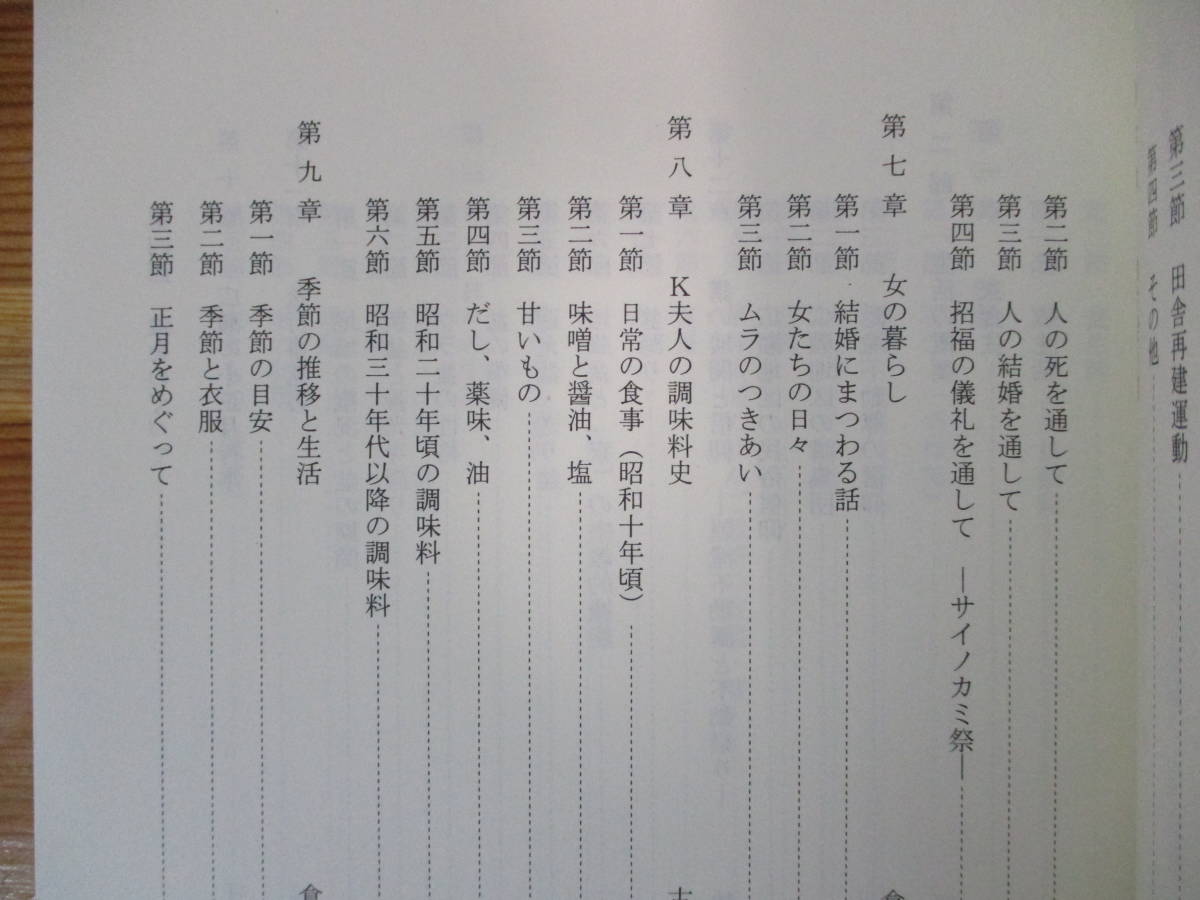 第三節　田舎再建運動
第四節　その他
第二節　人の死を通して
第三節　人の結婚を通して
第四節　招福の儀礼を通して　―サイノカミ祭―
第七章　女の暮らし
第一節　結婚にまつわる話
第二節　女たちの日々
第三節　ムラのつきあい
第八章　Ｋ夫人の調味料史
第一節　日常の食事（昭和十年頃）
第二節　味噌と醤油、塩
第三節　甘いもの
第四節　だし、薬味、油
第五節　昭和二十年頃の調味料
第六節　昭和三十年代以降の調味料
第九章　季節の推移と生活
第一節　季節の目安
第二節　季節と衣服
第三節　正月をめぐって